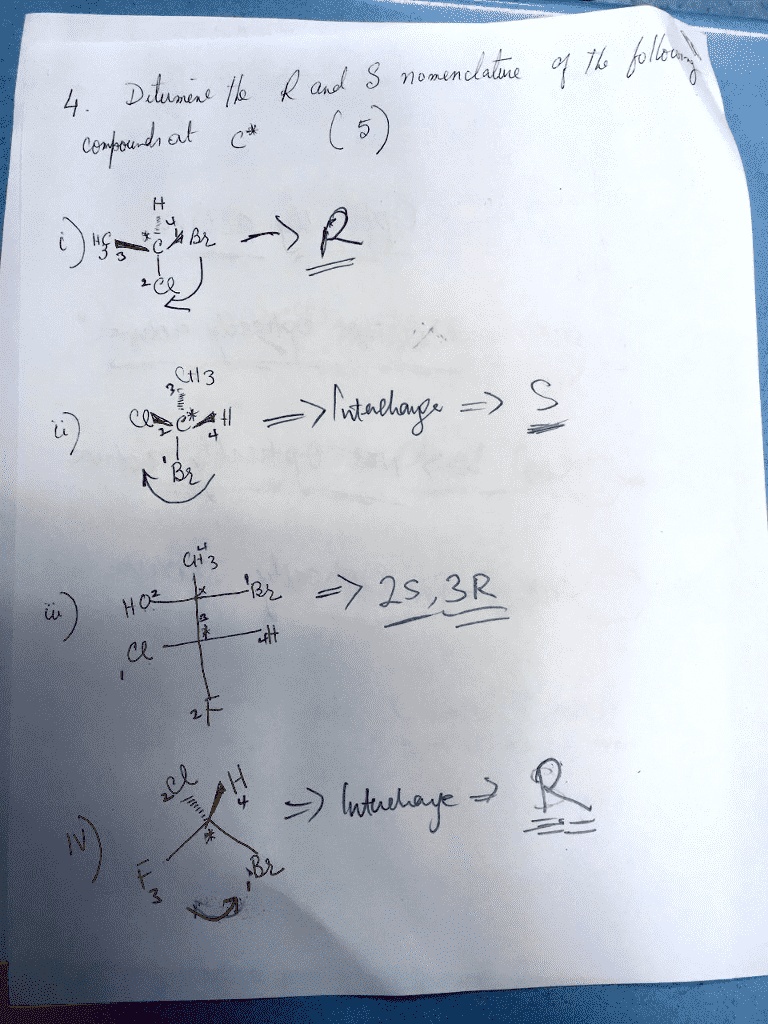 4. Ditermine the R and S nomenclature of the following
compounds at C* (5)
H
i) H3C 3 * C 4 Br → R
2 Cl
3 CH3
ii) Cl 2 C* H 4 => Interchange => S
1 Br
4 CH3
iii) HO2 * 1 Br => 2S, 3R
3
Cl * H
1
2 F
2 Cl H 4
iv) * => Interchange => R
F 3 1 Br